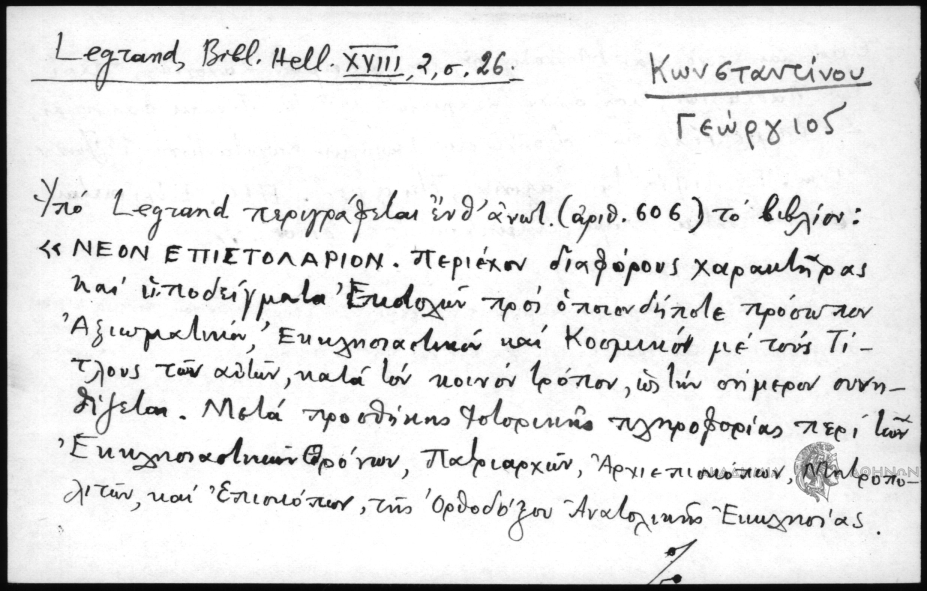 Legrand, Bibl. Hell. XVIII, 2, σ. 26.
Κωνσταντίνου
Γεώργιος
Ὑπό Legrand περιγράφεται ἔνθ' ἀνωτ. (ἀριθ. 606) τό βιβλίον:
« ΝΕΟΝ ΕΠΙΣΤΟΛΑΡΙΟΝ. Περιέχον διαφόρους χαρακτῆρας
καί ὑποδείγματα Ἐπιστολῶν πρός ὁποιονδήποτε πρόσωπον
Ἀξιωματικόν, Ἐκκλησιαστικόν καί Κοσμικόν μέ τούς Τί-
τλους τῶν αὐτῶν, κατά τόν κοινόν τρόπον, ὡς τήν σήμερον συνη-
θίζεται. Μετά προσθήκης ἱστορικῆς πληροφορίας περί τῶν
Ἐκκλησιαστικῶν Θρόνων, Πατριαρχῶν, Ἀρχιεπισκόπων, Μητροπο-
λιτῶν, καί Ἐπισκόπων, τῆς Ὀρθοδόξου Ἀνατολικῆς Ἐκκλησίας.
ΑΘΗΝΩΝ